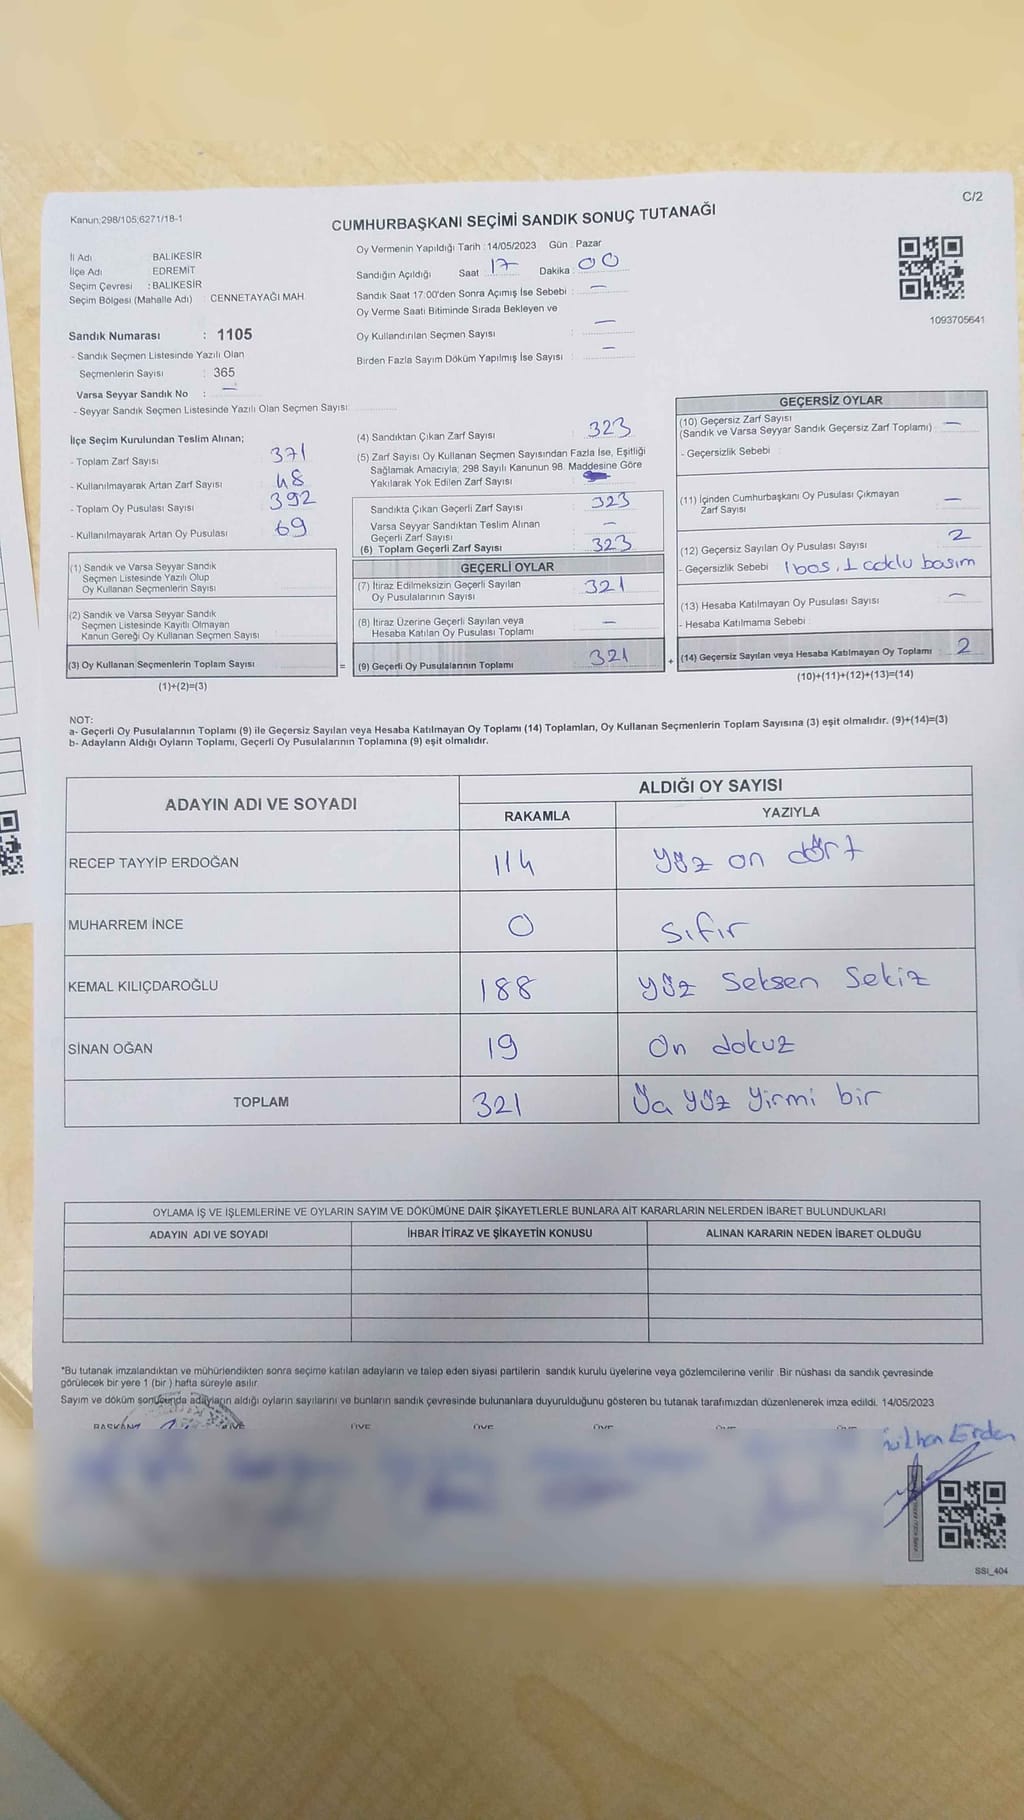 Kanun;298/105;6271/18-1
C/2
CUMHURBAŞKANI SEÇİMİ SANDIK SONUÇ TUTANAĞI
İl Adı : BALIKESİR
İlçe Adı : EDREMİT
Seçim Çevresi : BALIKESİR
Seçim Bölgesi (Mahalle Adı) : CENNETAYAĞI MAH.
Sandık Numarası : 1105
- Sandık Seçmen Listesinde Yazılı Olan
Seçmenlerin Sayısı : 365
Varsa Seyyar Sandık No : —
- Seyyar Sandık Seçmen Listesinde Yazılı Olan Seçmen Sayısı
Oy Vermenin Yapıldığı Tarih : 14/05/2023 Gün : Pazar
Sandığın Açıldığı Saat 17 Dakika : 00
Sandık Saat 17:00'den Sonra Açımış İse Sebebi : —
Oy Verme Saati Bitiminde Sırada Bekleyen ve
Oy Kullandırılan Seçmen Sayısı : —
Birden Fazla Sayım Döküm Yapılmış İse Sayısı : —
1093705641
İlçe Seçim Kurulundan Teslim Alınan;
- Toplam Zarf Sayısı : 371
- Kullanılmayarak Artan Zarf Sayısı : 48
- Toplam Oy Pusulası Sayısı : 392
- Kullanılmayarak Artan Oy Pusulası : 69
(1) Sandık ve Varsa Seyyar Sandık
Seçmen Listesinde Yazılı Olup
Oy Kullanan Seçmenlerin Sayısı
(2) Sandık ve Varsa Seyyar Sandık
Seçmen Listesinde Kayıtlı Olmayan
Kanun Gereği Oy Kullanan Seçmen Sayısı
(3) Oy Kullanan Seçmenlerin Toplam Sayısı
(1)+(2)=(3)
(4) Sandıktan Çıkan Zarf Sayısı : 323
(5) Zarf Sayısı Oy Kullanan Seçmen Sayısından Fazla İse, Eşitliği
Sağlamak Amacıyla; 298 Sayılı Kanunun 98. Maddesine Göre
Yakılarak Yok Edilen Zarf Sayısı
Sandıkta Çıkan Geçerli Zarf Sayısı : 323
Varsa Seyyar Sandıktan Teslim Alınan
Geçerli Zarf Sayısı : —
(6) Toplam Geçerli Zarf Sayısı : 323
GEÇERLİ OYLAR
(7) İtiraz Edilmeksizin Geçerli Sayılan
Oy Pusulalarının Sayısı : 321
(8) İtiraz Üzerine Geçerli Sayılan veya
Hesaba Katılan Oy Pusulası Toplamı : —
= (9) Geçerli Oy Pusulalarının Toplamı : 321
GEÇERSİZ OYLAR
(10) Geçersiz Zarf Sayısı
(Sandık ve Varsa Seyyar Sandık Geçersiz Zarf Toplamı) : —
- Geçersizlik Sebebi :
(11) İçinden Cumhurbaşkanı Oy Pusulası Çıkmayan
Zarf Sayısı : —
(12) Geçersiz Sayılan Oy Pusulası Sayısı : 2
- Geçersizlik Sebebi : 1 bos, 1 coklu basım
(13) Hesaba Katılmayan Oy Pusulası Sayısı : —
- Hesaba Katılmama Sebebi :
+ (14) Geçersiz Sayılan veya Hesaba Katılmayan Oy Toplamı : 2
(10)+(11)+(12)+(13)=(14)
NOT:
a- Geçerli Oy Pusulalarının Toplamı (9) ile Geçersiz Sayılan veya Hesaba Katılmayan Oy Toplamı (14) Toplamları, Oy Kullanan Seçmenlerin Toplam Sayısına (3) eşit olmalıdır. (9)+(14)=(3)
b- Adayların Aldığı Oyların Toplamı, Geçerli Oy Pusulalarının Toplamına (9) eşit olmalıdır.
ADAYIN ADI VE SOYADI
ALDIĞI OY SAYISI
RAKAMLA YAZIYLA
RECEP TAYYİP ERDOĞAN 114 yüz on dört
MUHARREM İNCE 0 sıfır
KEMAL KILIÇDAROĞLU 188 yüz Seksen Sekiz
SİNAN OĞAN 19 On dokuz
TOPLAM 321 yüz yirmi bir
OYLAMA İŞ VE İŞLEMLERİNE VE OYLARIN SAYIM VE DÖKÜMÜNE DAİR ŞİKAYETLERLE BUNLARA AİT KARARLARIN NELERDEN İBARET BULUNDUKLARI
ADAYIN ADI VE SOYADI İHBAR İTİRAZ VE ŞİKAYETİN KONUSU ALINAN KARARIN NEDEN İBARET OLDUĞU
*Bu tutanak imzalandıktan ve mühürlendikten sonra seçime katılan adayların ve talep eden siyasi partilerin sandık kurulu üyelerine veya gözlemcilerine verilir. Bir nüshası da sandık çevresinde
görülecek bir yere 1 (bir ) hafta süreyle asılır.
Sayım ve döküm sonucunda adayların aldığı oyların sayılarını ve bunların sandık çevresinde bulunanlara duyurulduğunu gösteren bu tutanak tarafımızdan düzenlenerek imza edildi. 14/05/2023
BAŞKAN ÜYE ÜYE ÜYE ÜYE ÜYE ÜYE
Erden
SSI_404